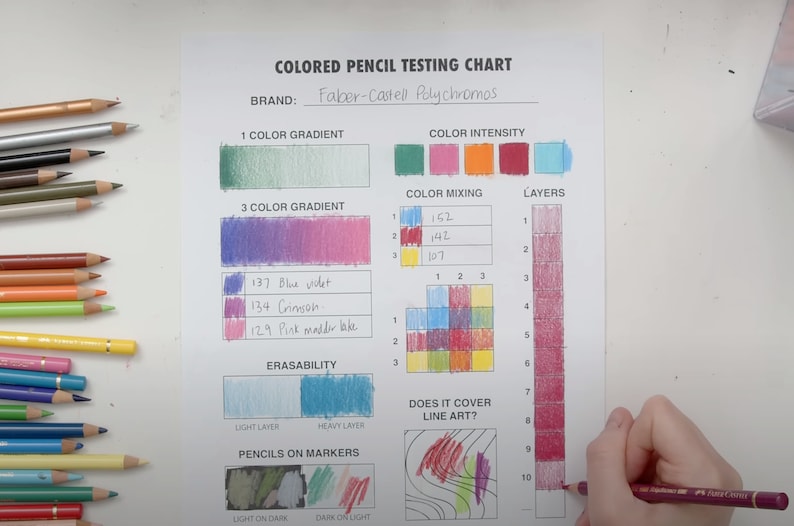 COLORED PENCIL TESTING CHART
BRAND: Faber-Castell Polychromos
1 COLOR GRADIENT
COLOR INTENSITY
3 COLOR GRADIENT
137 Blue violet
134 Crimson.
129 Pink madder lake
COLOR MIXING
1 152
2 142
3 107
1 2 3
1
2
3
LAYERS
1
2
3
4
5
6
7
8
9
10
ERASABILITY
LIGHT LAYER HEAVY LAYER
DOES IT COVER
LINE ART?
PENCILS ON MARKERS
LIGHT ON DARK DARK ON LIGHT
FABER-CASTELL